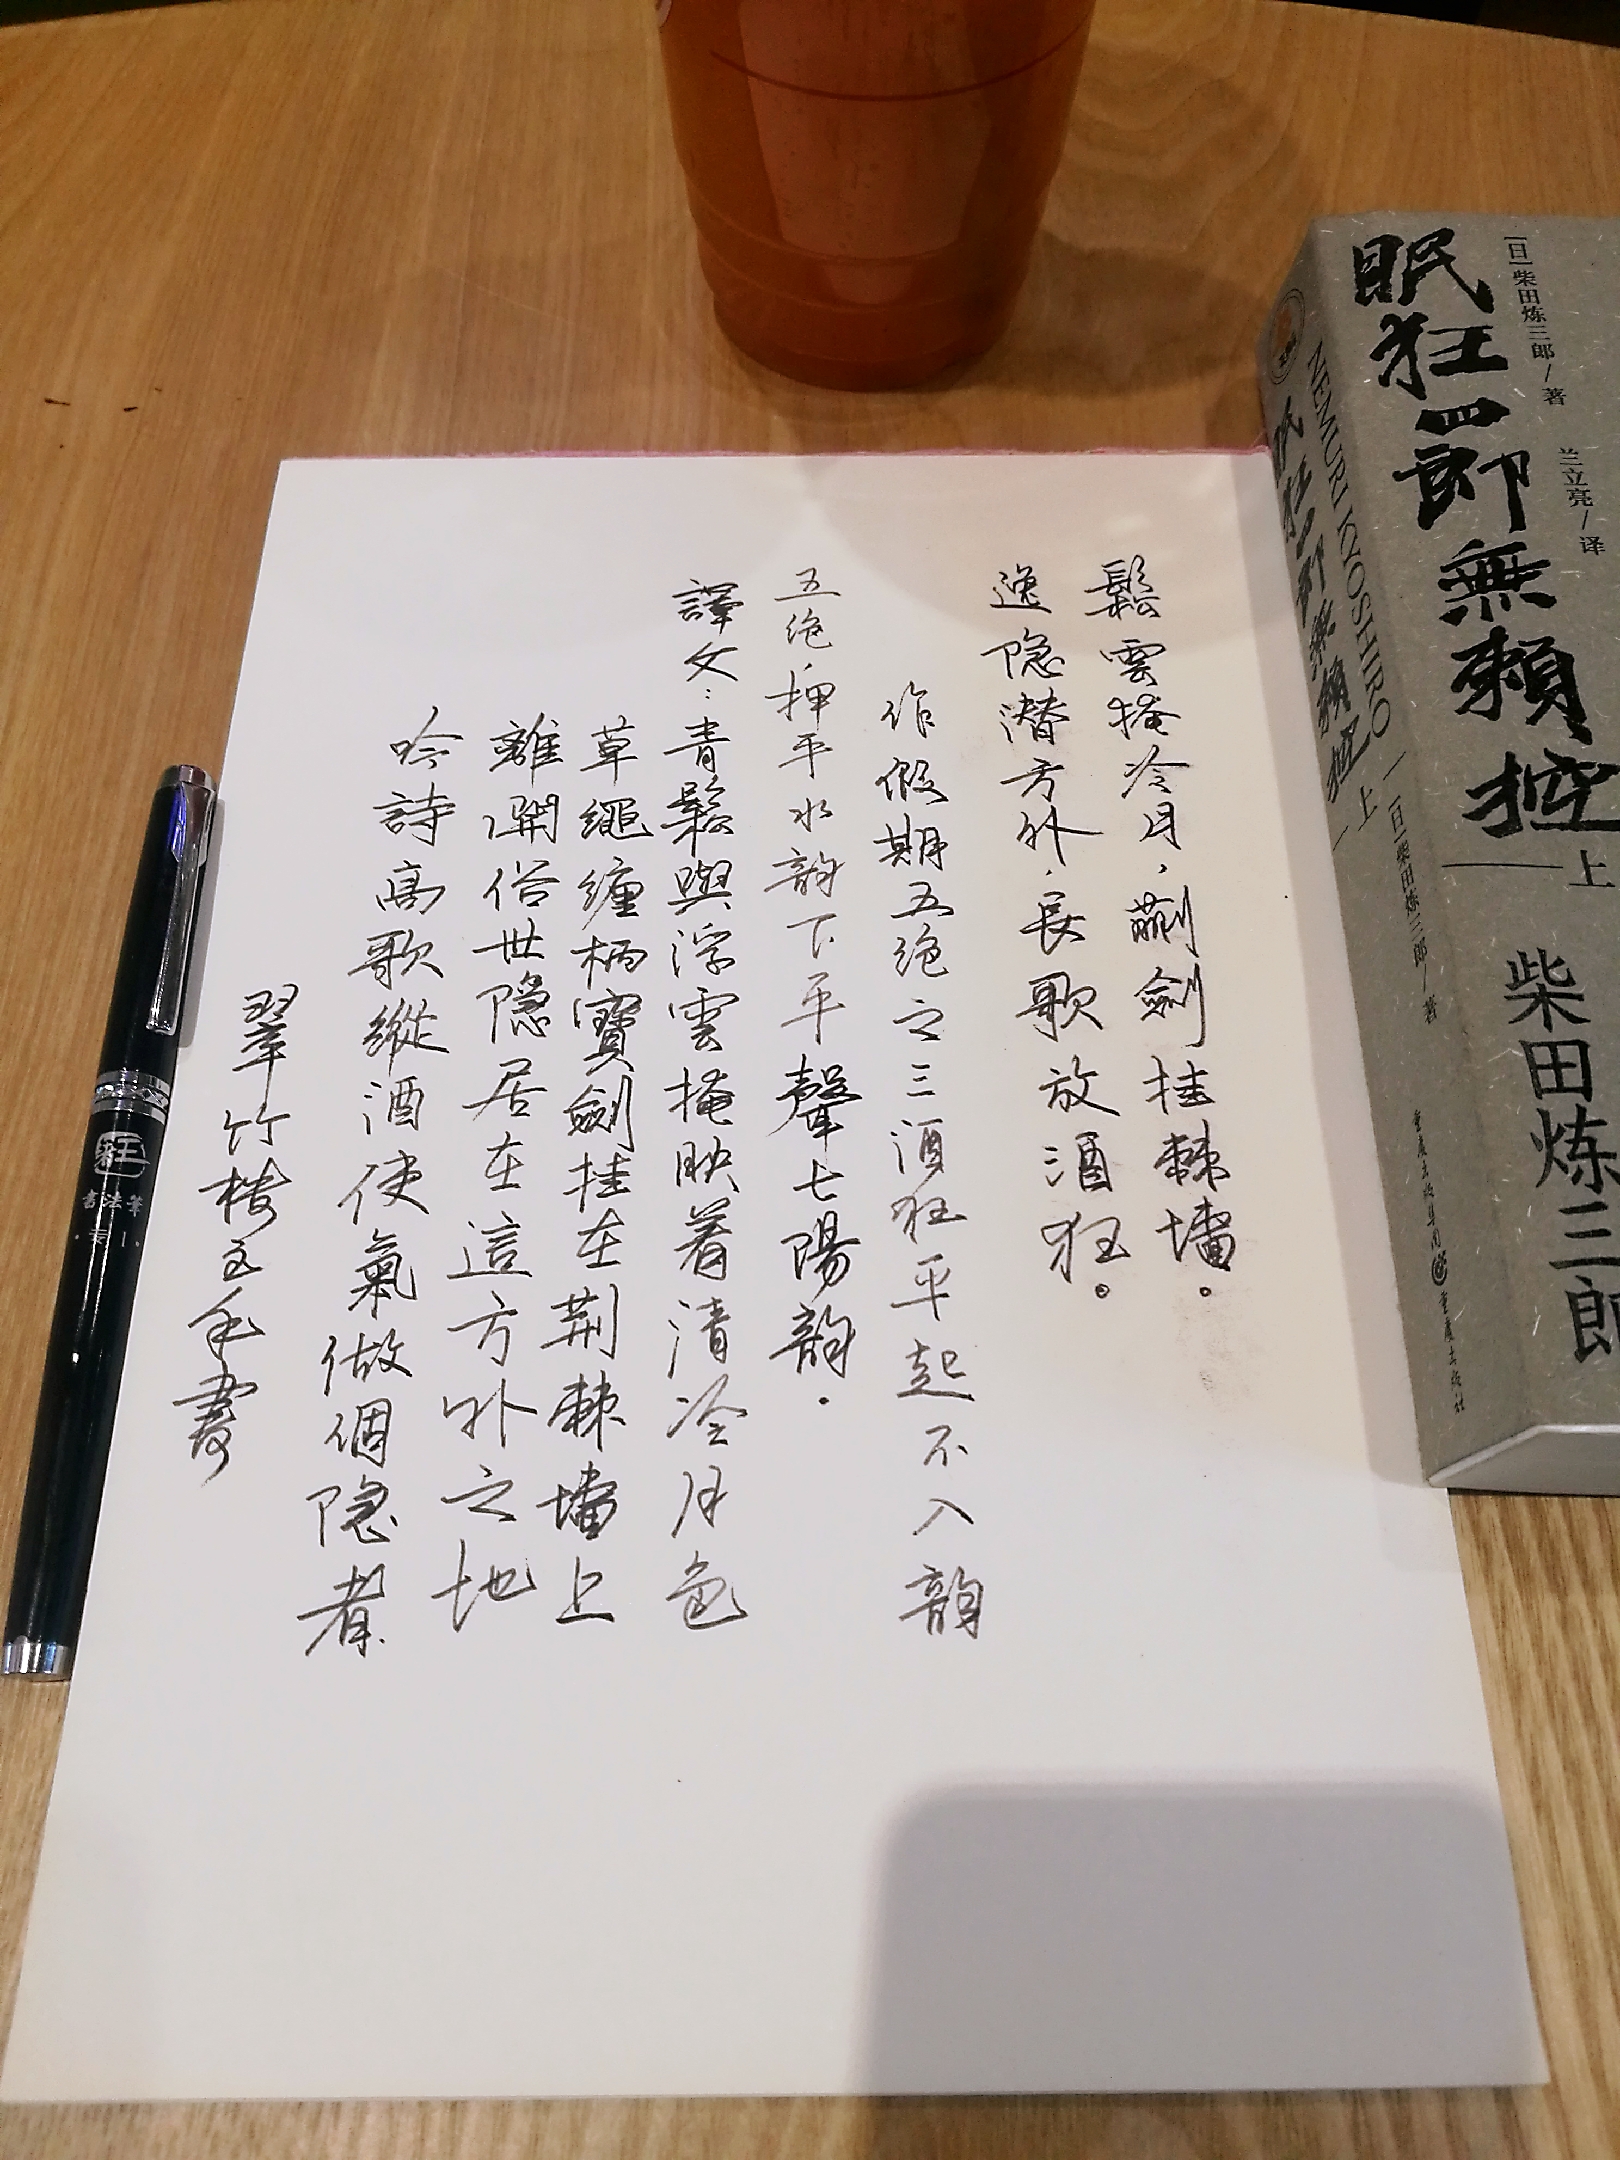 鬆雲掩冷月，蒯劍挂棘墻。
逸隐潜方外，長歌放酒狂。
作假期五绝之三酒狂平起不入韵
五绝，押平水韵下平聲七陽韵.
譯文：青鬆與浮雲掩映着清冷月色
草繩缠柄寶劍挂在荆棘墻上
離開俗世隐居在這方外之地
吟詩高歌縱酒使氣做個隐者.
翠竹楼主手書
眠狂四郎無賴控
上
[日]柴田炼三郎/著
兰立亮/译
柴田炼三郎
NEMURI KYOSHIRO
眠狂四郎無賴控
上
[日]柴田炼三郎/著
重庆出版集团 重庆出版社
書法筆